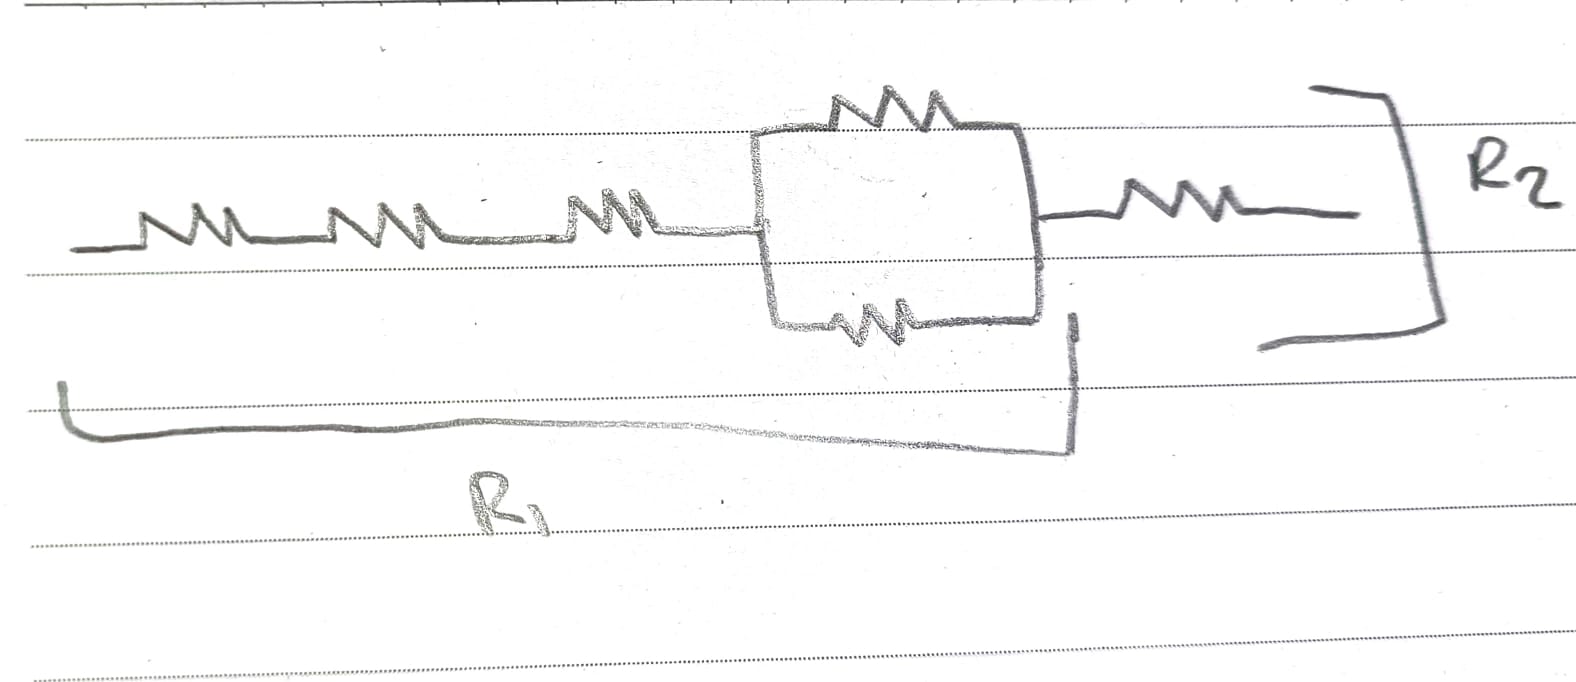 R2
R1